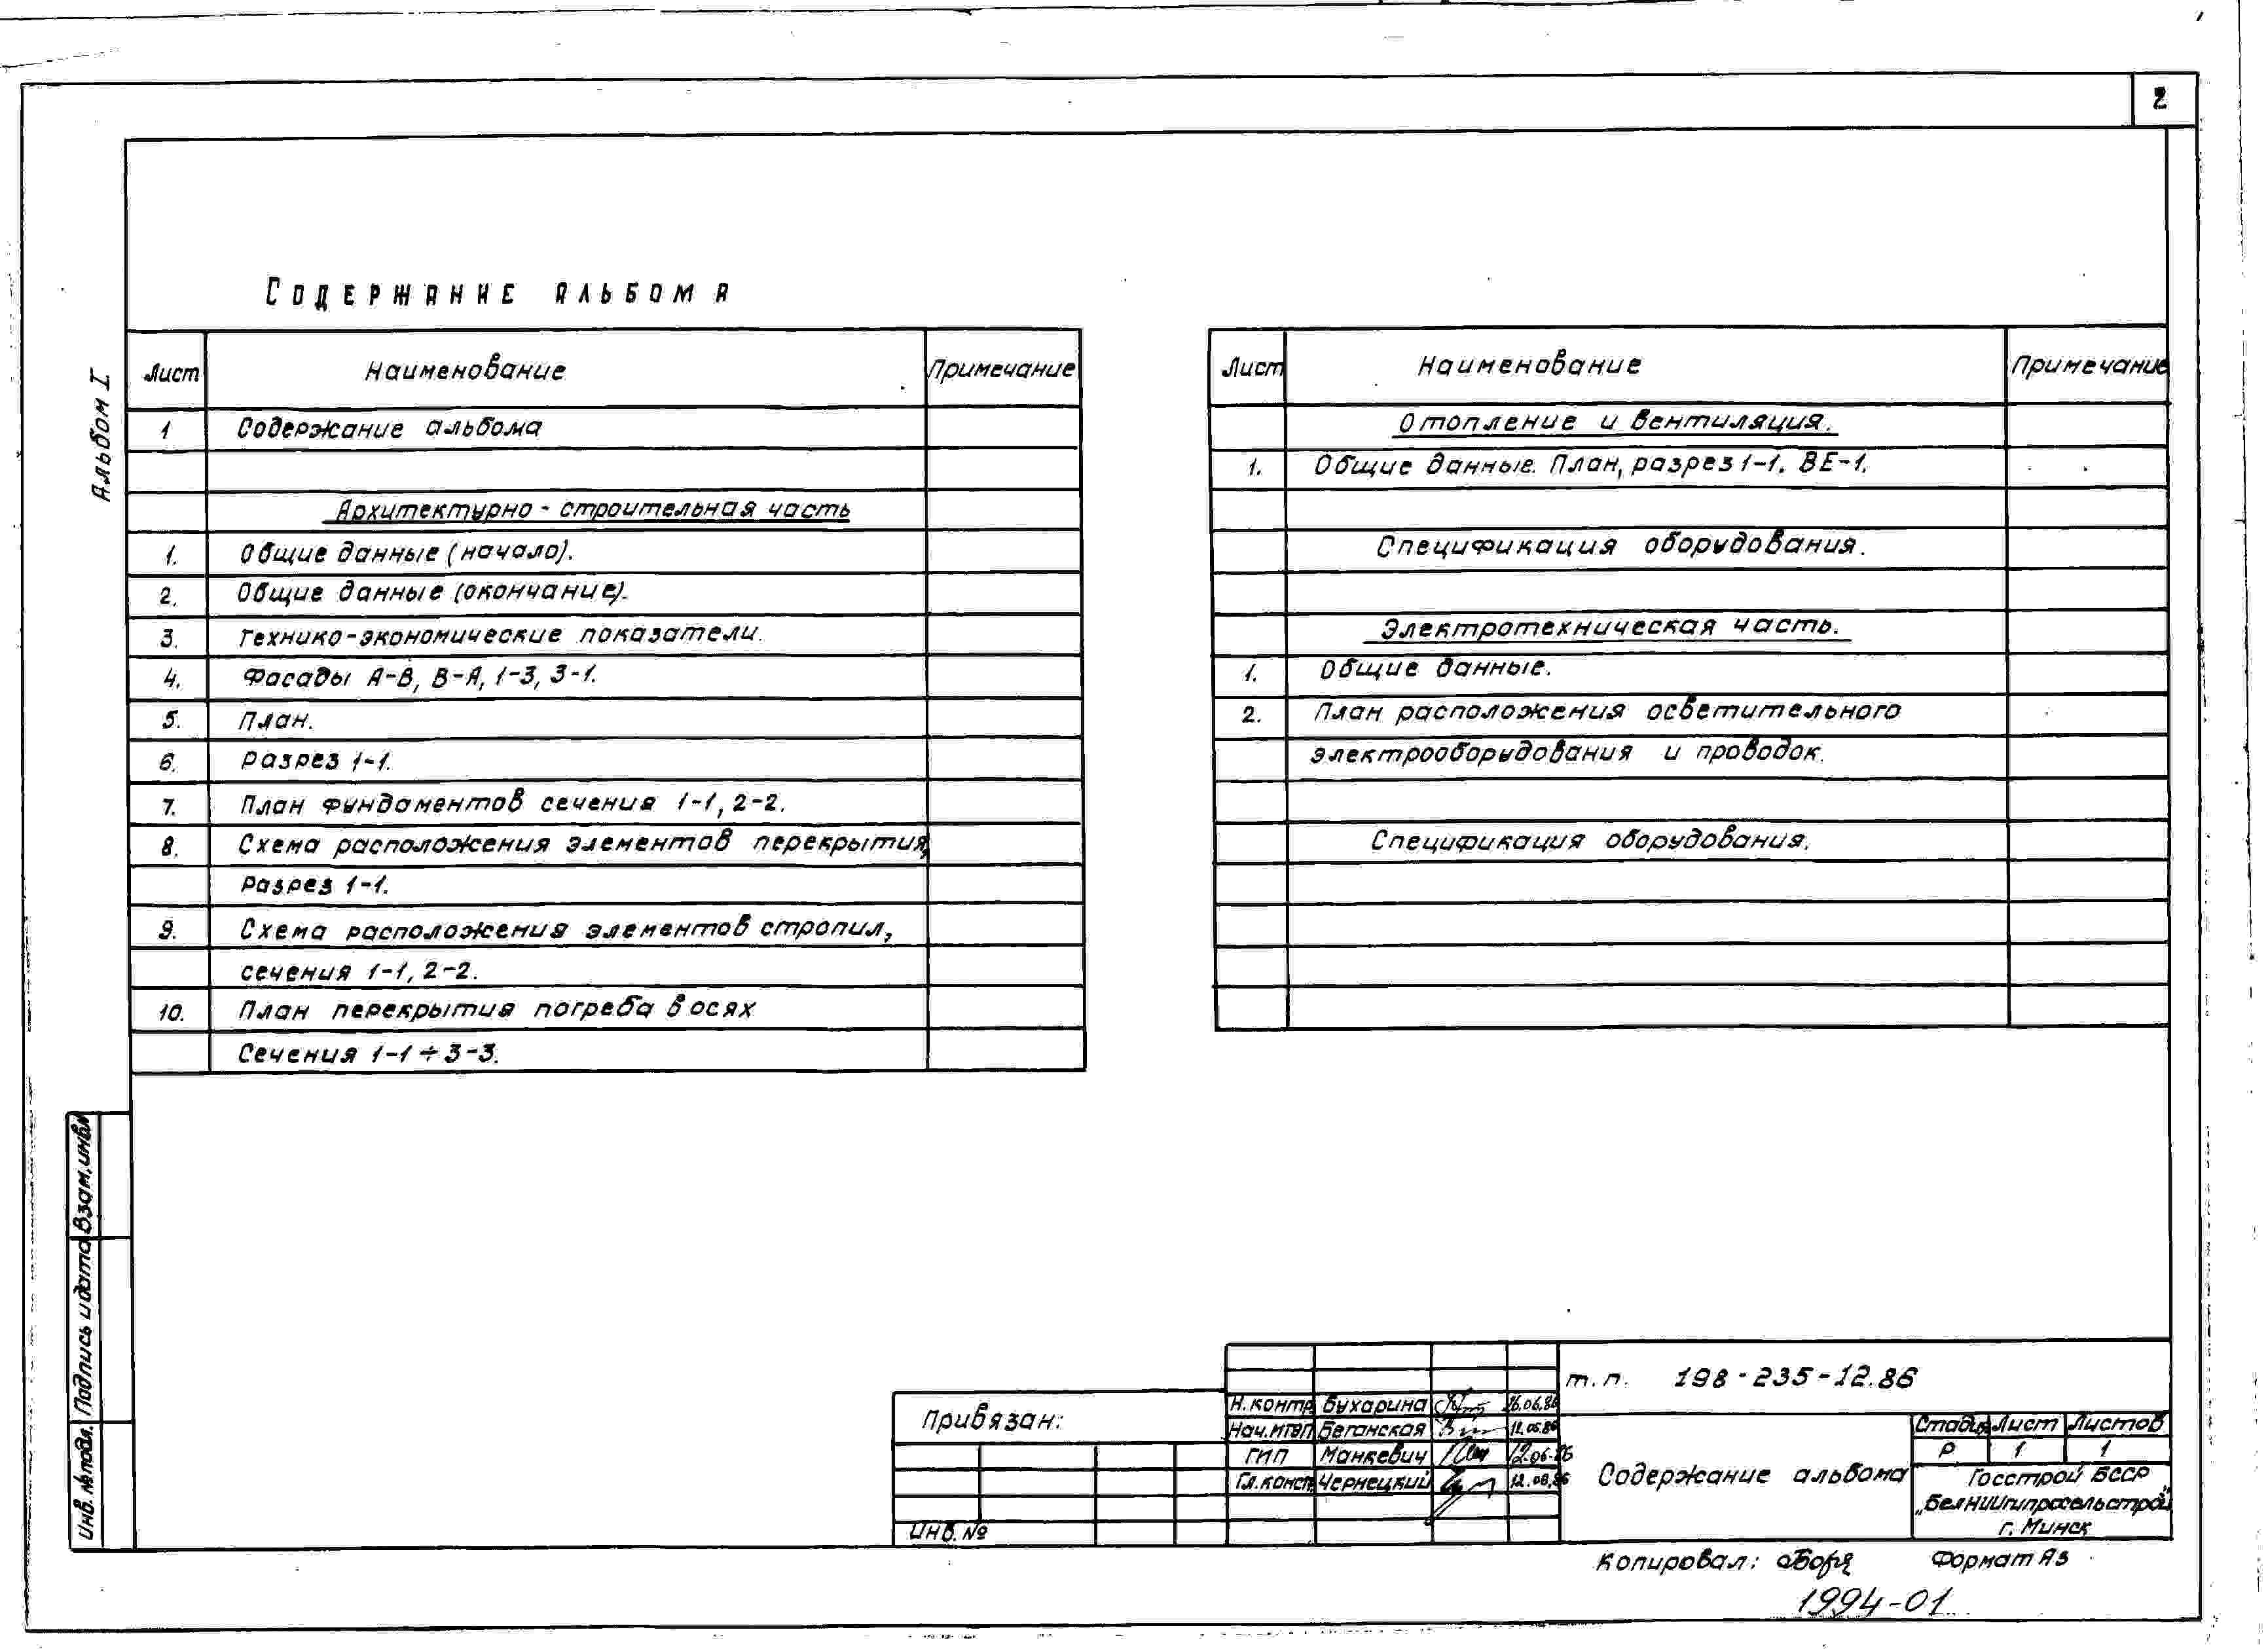 2
Альбом I
Содержание альбома
Лист Наименование Примечание
1 Содержание альбома
Архитектурно-строительная часть
1. Общие данные (начало).
2. Общие данные (окончание).
3. Технико-экономические показатели.
4. Фасады А-В, В-А, 1-3, 3-1.
5. План.
6. Разрез 1-1.
7. План фундаментов сечения 1-1, 2-2.
8. Схема расположения элементов перекрытия,
Разрез 1-1.
9. Схема расположения элементов стропил,
сечения 1-1, 2-2.
10. План перекрытия погреба в осях
Сечения 1-1÷3-3.
Лист Наименование Примечание
Отопление и вентиляция.
1. Общие данные. План, разрез 1-1. ВЕ-1.
Спецификация оборудования.
Электротехническая часть.
1. Общие данные.
2. План расположения осветительного
электрооборудования и проводок.
Спецификация оборудования.
Взам. инв.
Подпись и дата
Инв. № подл.
Привязан:
Инв. №
Н. контр. Бухарина 26.06.86
Нач. Беганская 12.06.86
ГИП Манкевич 12.06.86
Гл. конст. Чернецкий 12.06.86
т.п. 198-235-12.86
Содержание альбома
Стадия Лист Листов
Р 1 1
Госстрой БССР
„Белниигипросельстрой"
г. Минск
Копировал: Формат А3
1994-01